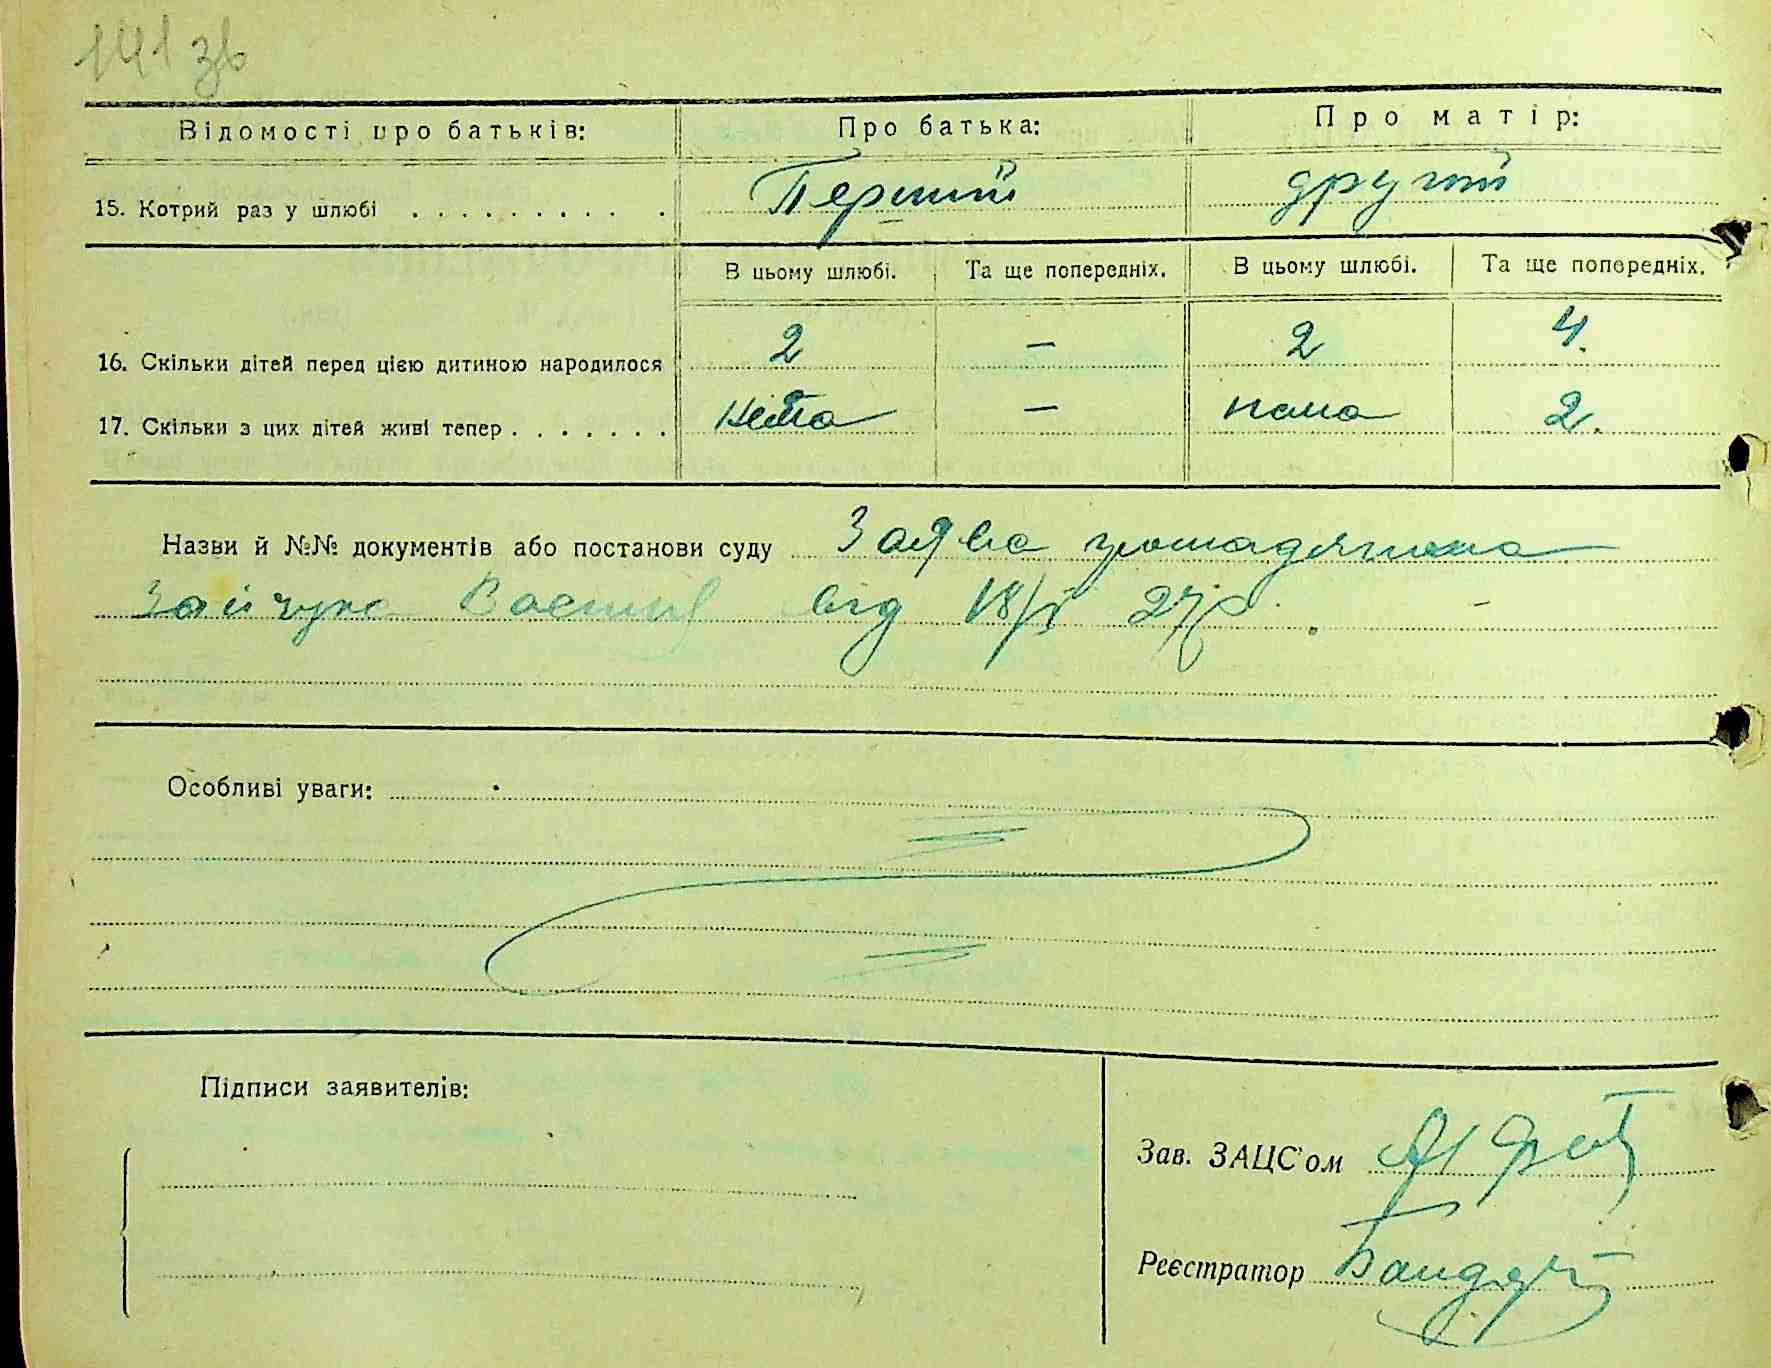 141 зв
Відомості про батьків: Про батька: Про матір:
15. Котрий раз у шлюбі . . . . . . . . . . Перший другий
В цьому шлюбі. Та ще попередніх. В цьому шлюбі. Та ще попередніх.
16. Скільки дітей перед цією дитиною народилося 2 – 2 4.
17. Скільки з цих дітей живі тепер . . . . . . . нема – нема 2.
Назви й №№ документів або постанови суду Заява громадянина
Зайчука Василя від 18/V 27р.
Особливі уваги:
Підписи заявителів:
Зав. ЗАЦС'ом
Реєстратор